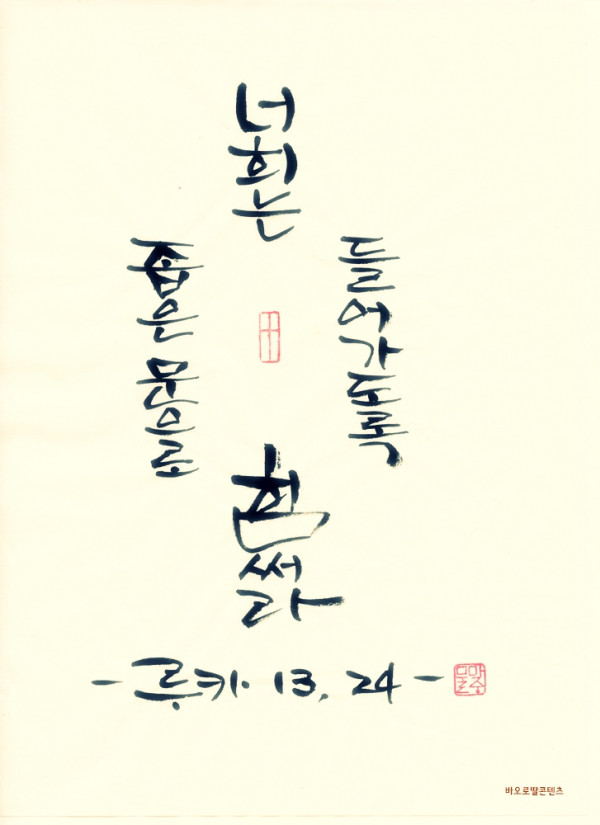 너희는
좁은 문으로
들어가도록
힘써라
- 루카 13, 24 -
바오로딸콘텐츠